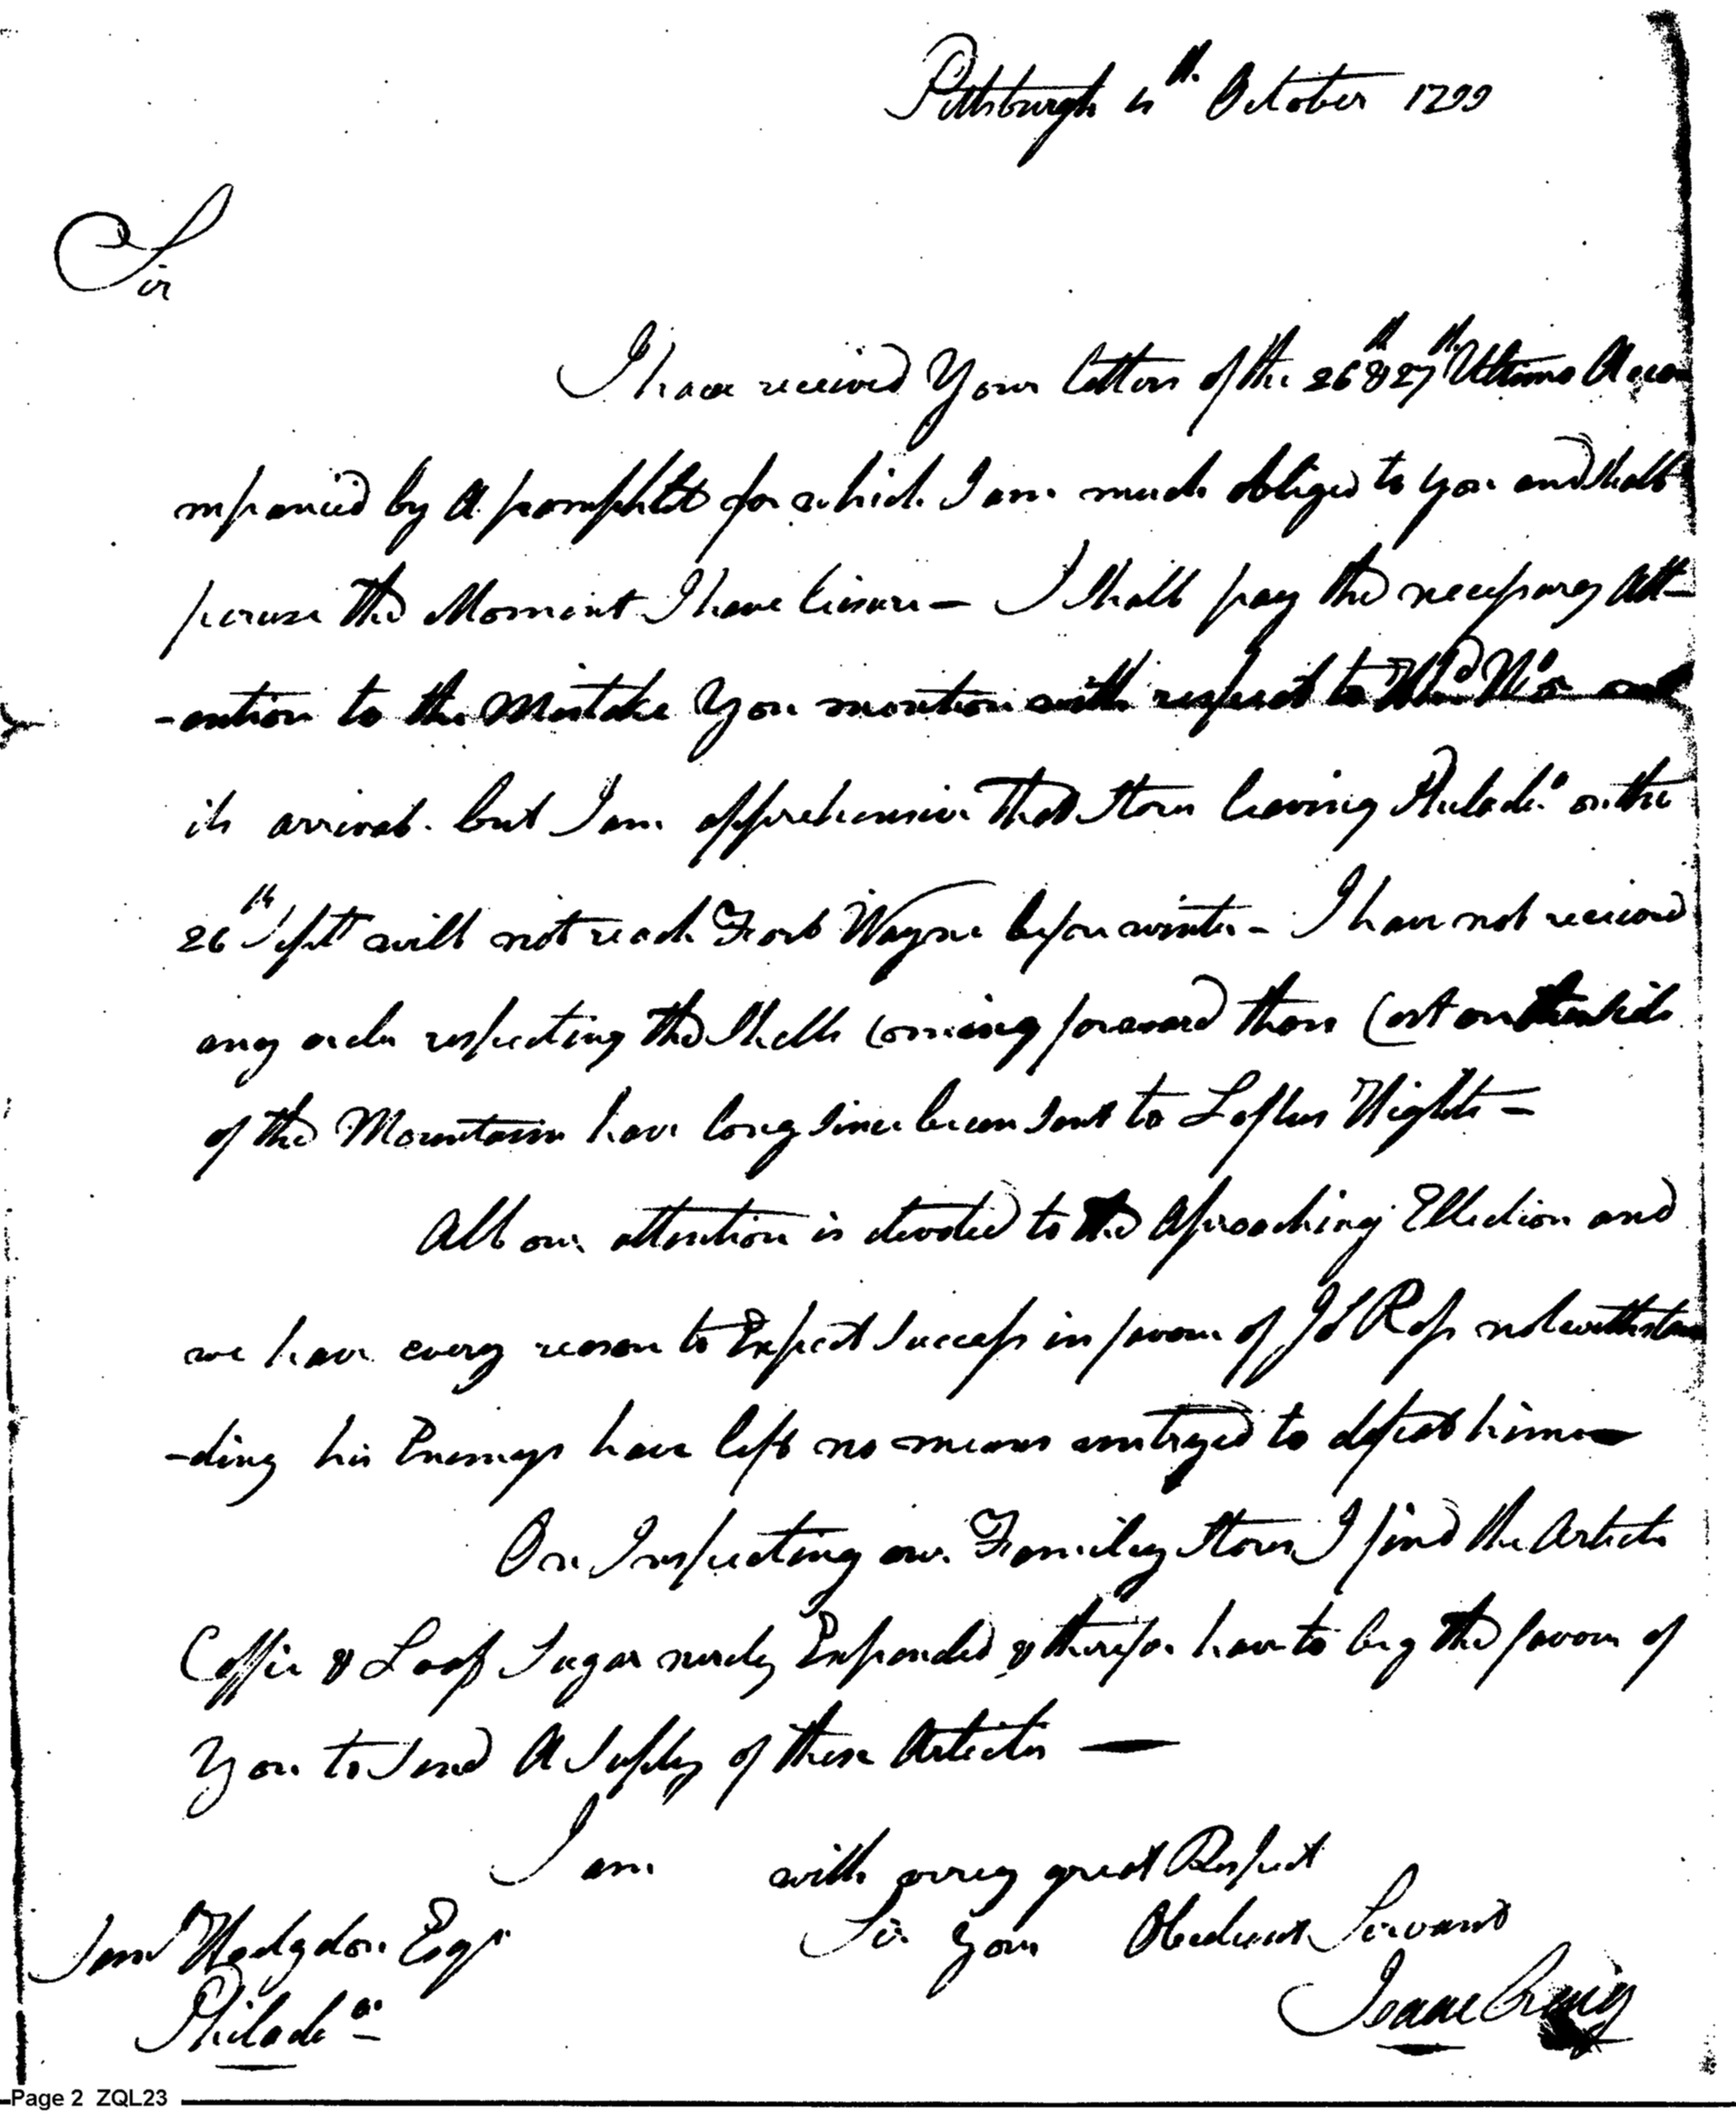 Pittsburgh 4th October 1799
Sir
I have received Your letters of the 26 & 27th Ultimo Accom
mpanied by A pamphlet for which I am much obliged to you and shall
peruse the Moment I have liesure — I shall pay the necessary Att-
-ention to the Mistake You mention with respect to on
its arrival. but I am apprehensive that Stores leaving Philada on the
26th Sept will not reach Fort Wayne before winter - I have not received
any order respecting the Shells coming forward those Cast on this side
of the Mountain have long since been sent to Loftus Hights —
All our attention is devoted to the Aproaching Ellection and
we have every reason to Expect Success in favour of Js Ross notwithstan
-ding his Enemys have left no means untryed to defeat him —
On Inspecting our Family Stores I find the Articles
Coffie & Loaf Sugar nerely Expended & therefor have to beg the favour of
You to send A Suply of these Articles —
I am with verry great Respect
Sir Your Obedient Servant
Saml Hodgdon Esqr
Isaac Craig
Philada
Page 2 ZQL23